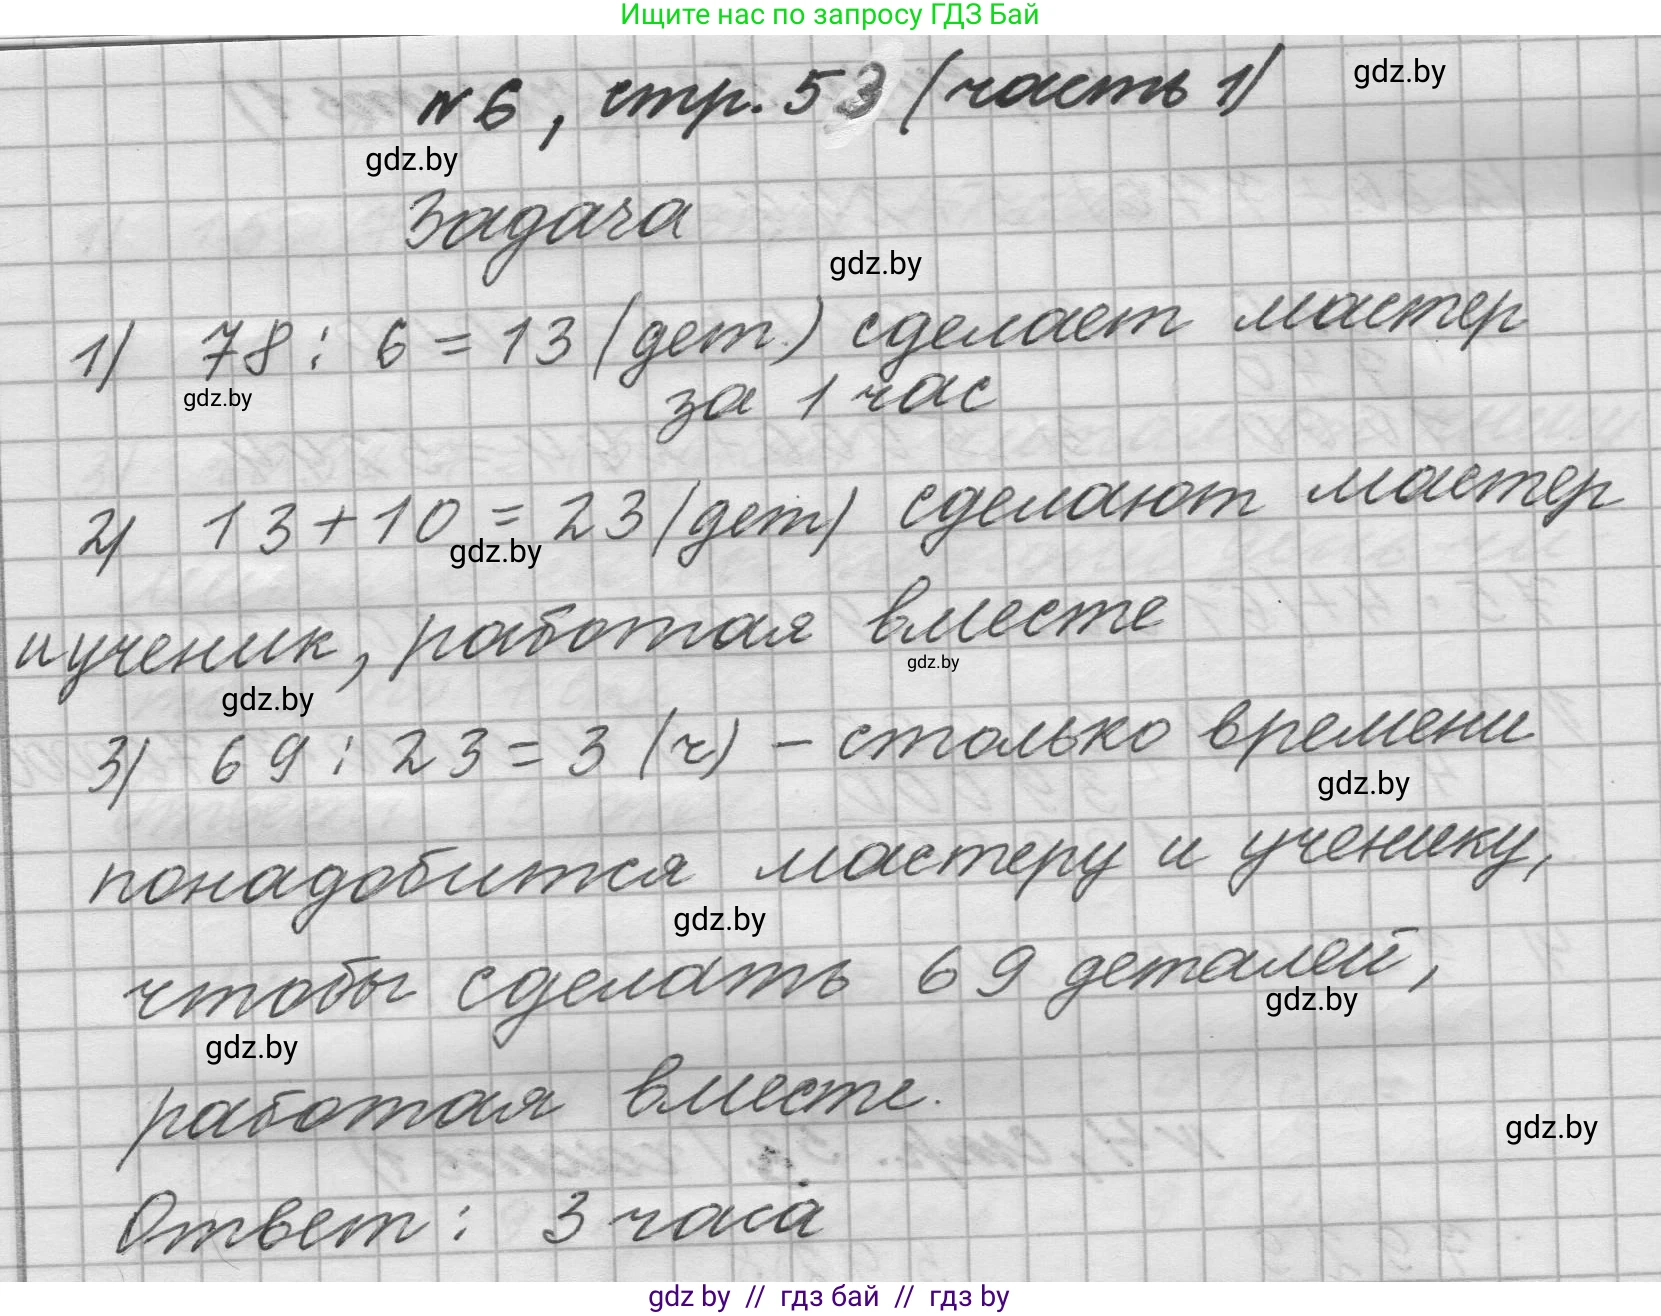 Ищите нас по запросу ГДЗ Бай
№6, стр. 53 (часть 1)
gdz.by
gdz.by
Задача
gdz.by
1) 78 : 6 = 13 (дет.) сделает мастер
gdz.by
за 1 час
2) 13 + 10 = 23 (дет) сделают мастер
gdz.by
и ученик, работая вместе
gdz.by
gdz.by
3) 69 : 23 = 3 (ч) – столько времени
gdz.by
понадобится мастеру и ученику,
gdz.by
чтобы сделать 69 деталей,
gdz.by
gdz.by
работая вместе.
gdz.by
Ответ : 3 часа
gdz by // гдз бай // гдз by